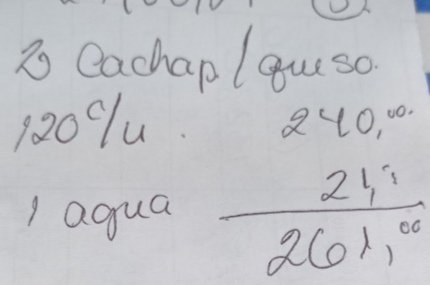 2 Cachap/queso.
120 c/u. 240,00.
21,
1 agua
261,00